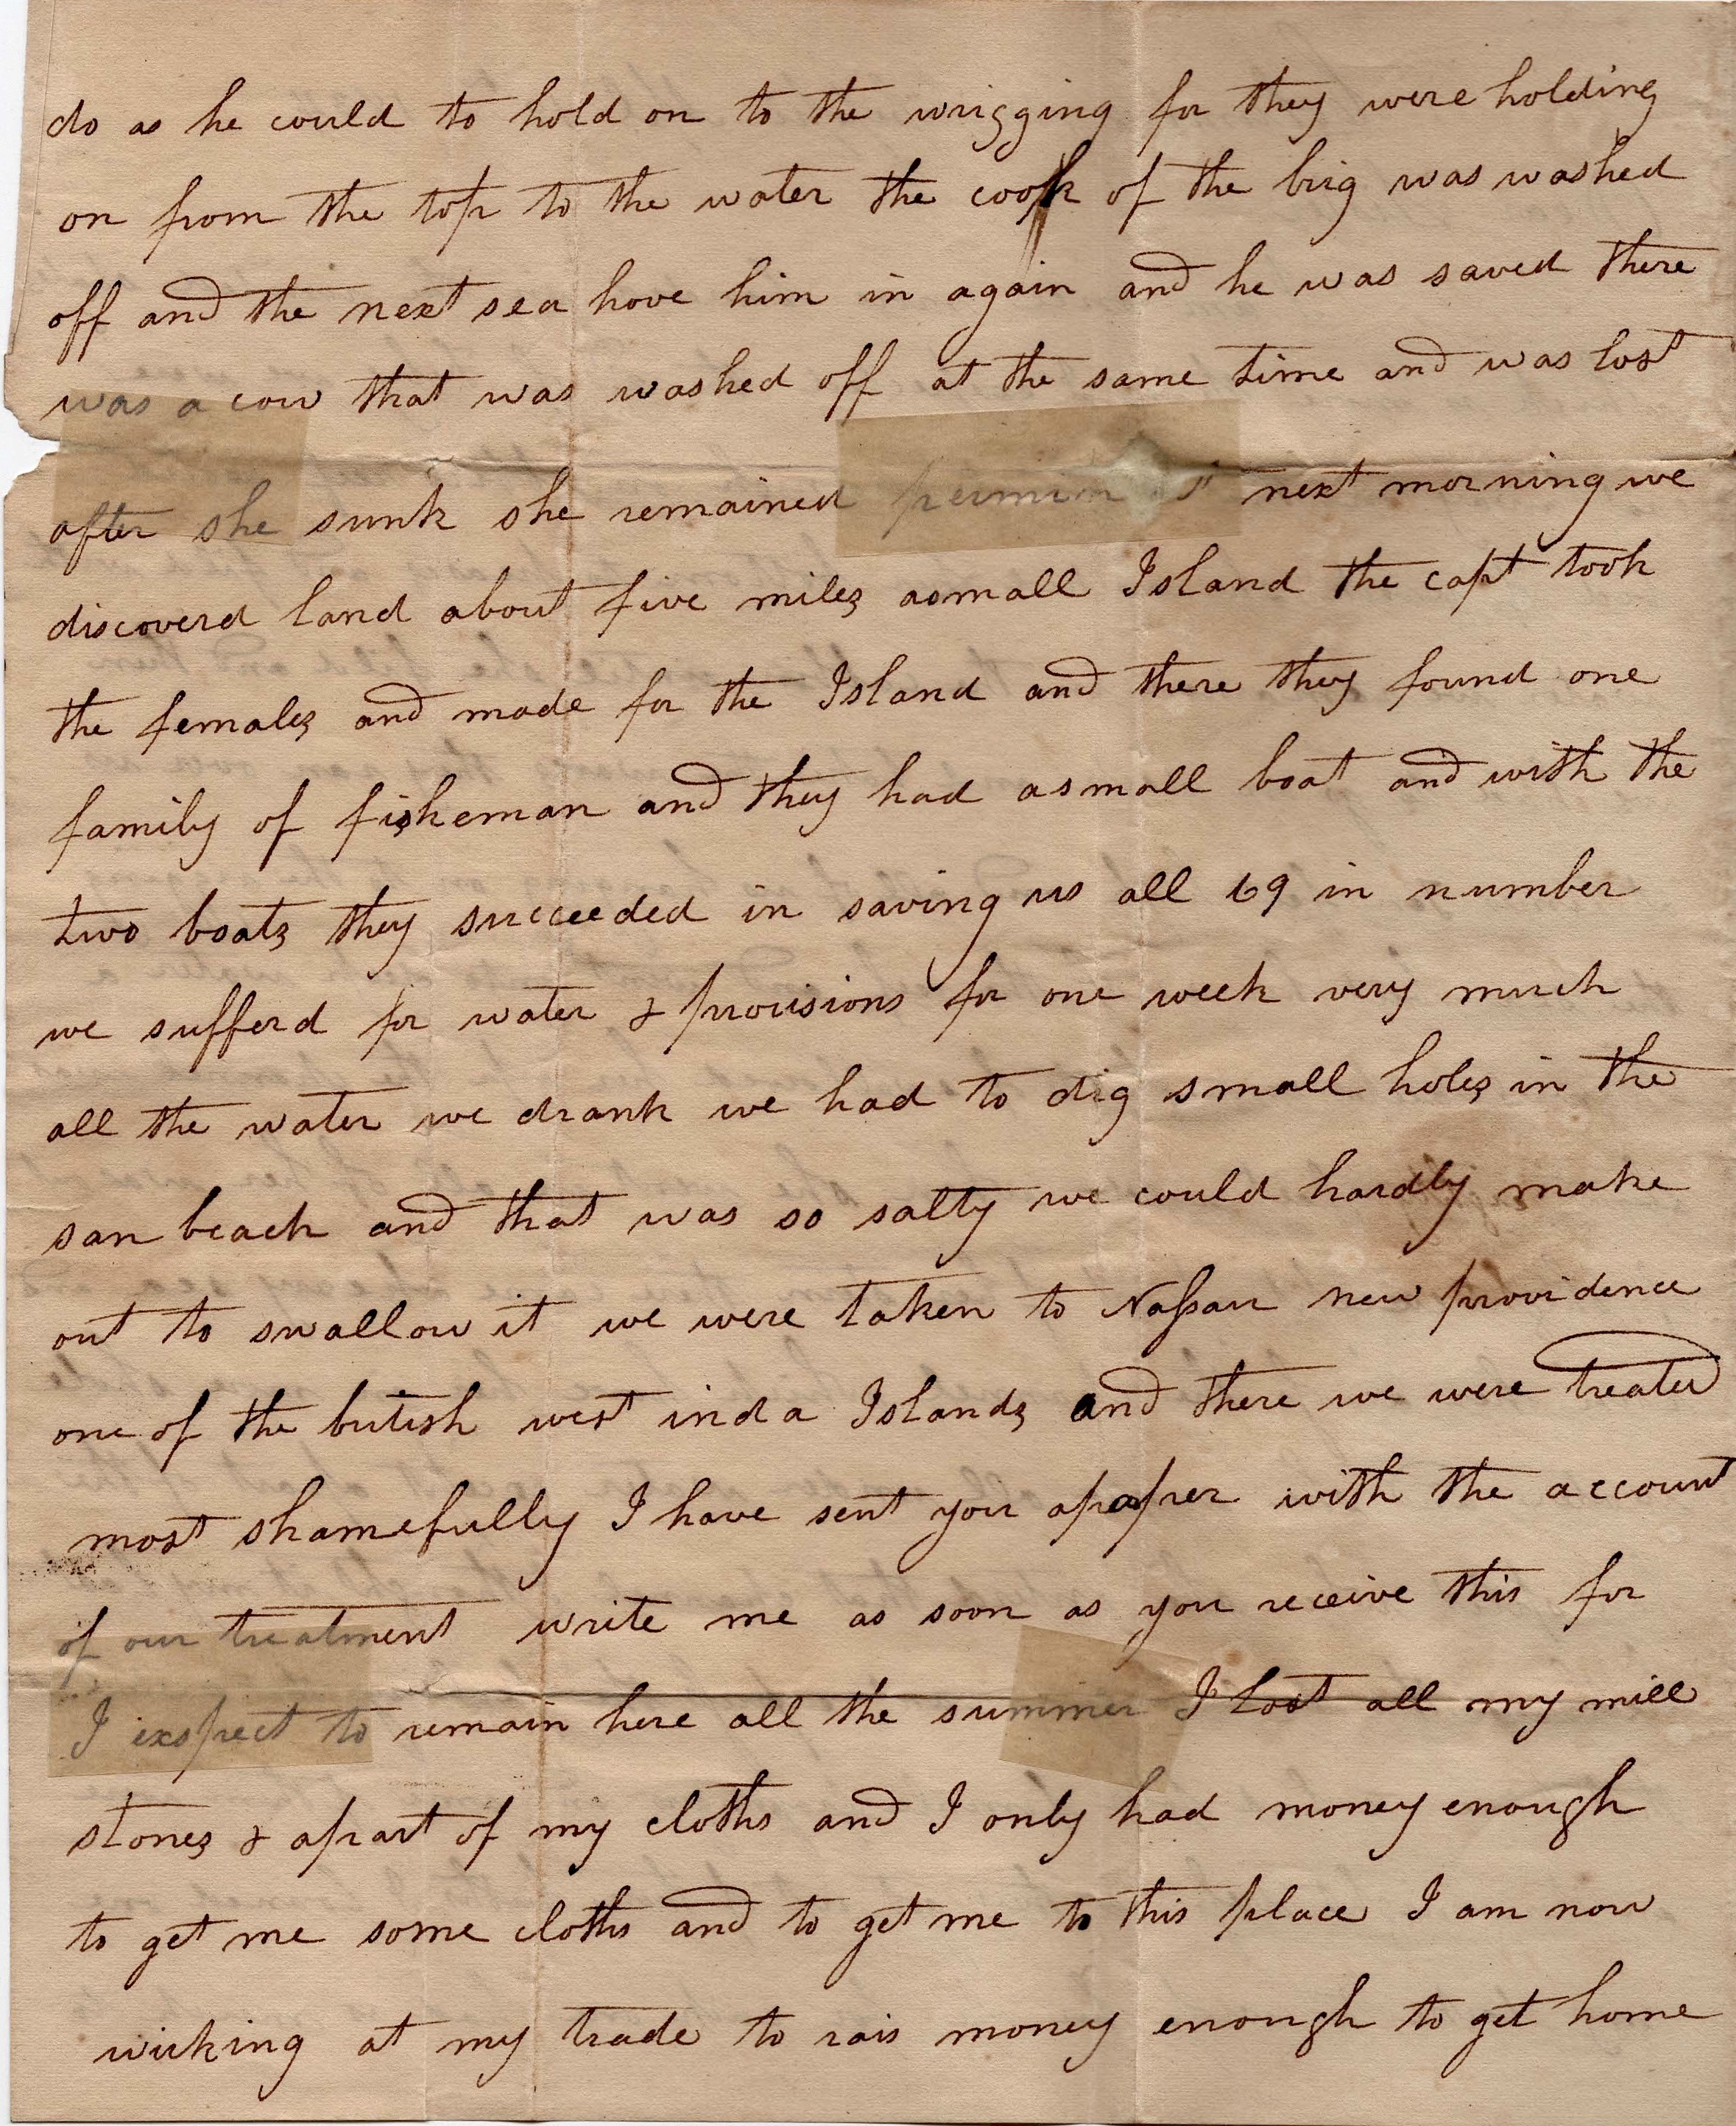 do as he could to hold on to the wrigging for they were holding
on from the top to the water the cook of the brig was washed
off and the next sea hove him in again and he was saved there
was a cow that was washed off at the same time and was lost
after she sunk she remained next morning we
discoverd land about five miles asmall Island the capt took
the females and made for the Island and there they found one
family of fisheman and they had asmall boat and with the
two boats they succeeded in saving us all 69 in number
we sufferd for water & provisions for one week very much
all the water we drank we had to dig small holes in the
san beach and that was so salty we could hardly make
out to swallow it we were taken to Nassau new providence
one of the british west inda Islands and there we were treated
most shamefully I have sent you apaper with the account
of our treatment write me as soon as you receive this for
I exspect to remain here all the summer I lost all my mill
stones & apart of my cloths and I only had money enough
to get me some cloths and to get me to this place I am now
wirking at my trade to rais money enough to get home